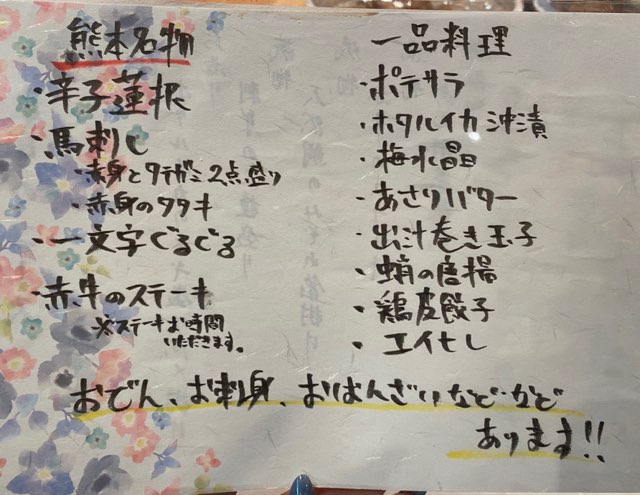 熊本名物
・辛子蓮根
・馬刺し
・赤身とタテガミ2点盛り
・赤身のタタキ
・一文字ぐるぐる
・赤牛のステーキ
※ステーキお時間
いただきます。
一品料理
・ポテサラ
・ホタルイカ沖漬
・梅水晶
・あさりバター
・出汁巻き玉子
・蛸の唐揚
・鶏皮餃子
・エイヒレ
おでん、お刺身、おばんざいなど・など
あります!!